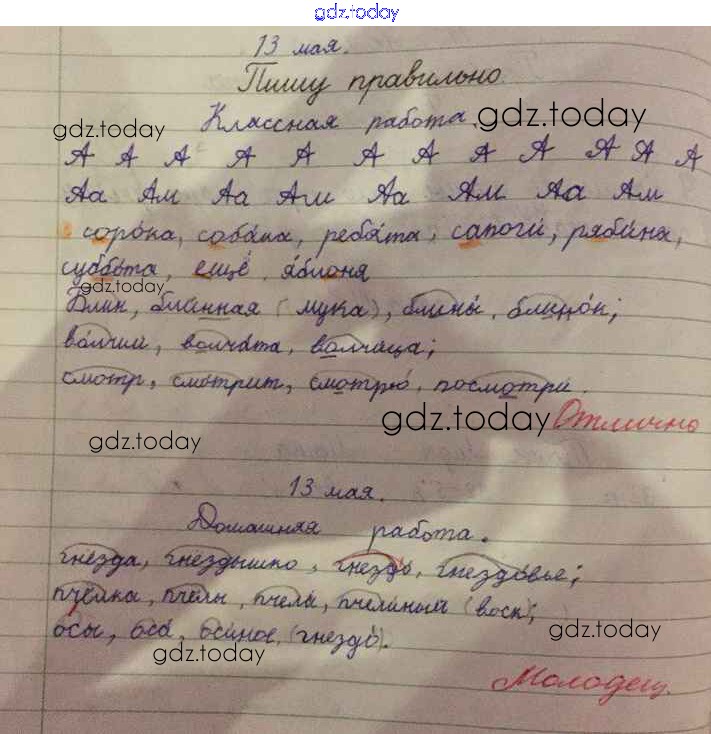 gdz.today
13 мая.
Пишу правильно
Классная работа.
gdz.today
gdz.today
А А А А А А А А А А А А
Аа Ам Аа Ам Аа Ам Аа Ам
соро́ка, соба́ка, ребя́та, сапоги́, ряби́на,
суббо́та, ещё, я́блоня
gdz.today
Блин, бли́нная (мука), блины́, блино́к;
во́лчий, волча́та, волчи́ца;
смотр, смо́трит, смотрю́, посмотри́.
gdz.today Отлично
gdz.today
13 мая.
Домашняя работа.
гнёзда, гнёздышко, гнездо́, гнездо́вье;
пчёлка, пчёлы, пчела́, пчели́ный (воск);
о́сы, оса́, оси́ное (гнездо́).
gdz.today
gdz.today
Молодец.